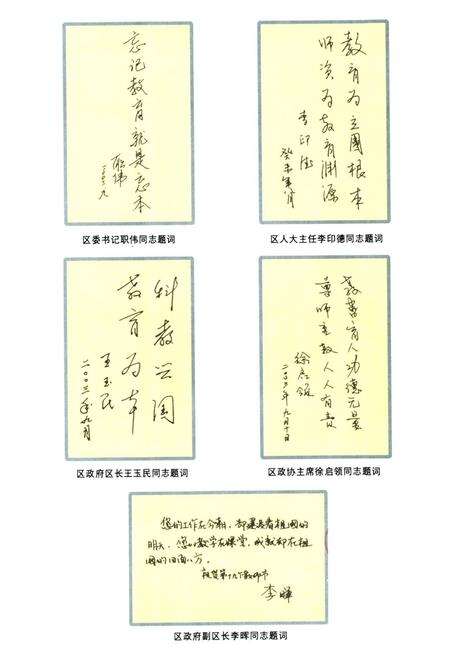 忘记教育就是忘本
职伟
二〇〇三.九
区委书记职伟同志题词
教育为立国根本
师资为教育渊源
李印德
癸未年八月
区人大主任李印德同志题词
科教兴国
教育为本
王玉民
二〇〇三年九月
区政府区长王玉民同志题词
教书育人功德无量
尊师重教人人有责
徐启领
二〇〇三年九月十日
区政协主席徐启领同志题词
您的工作在今朝,却建设着祖国的
明天,您的教学在课堂,成就却在祖
国的四面八方。
祝贺第十九个教师节
李晖
区政府副区长李晖同志题词